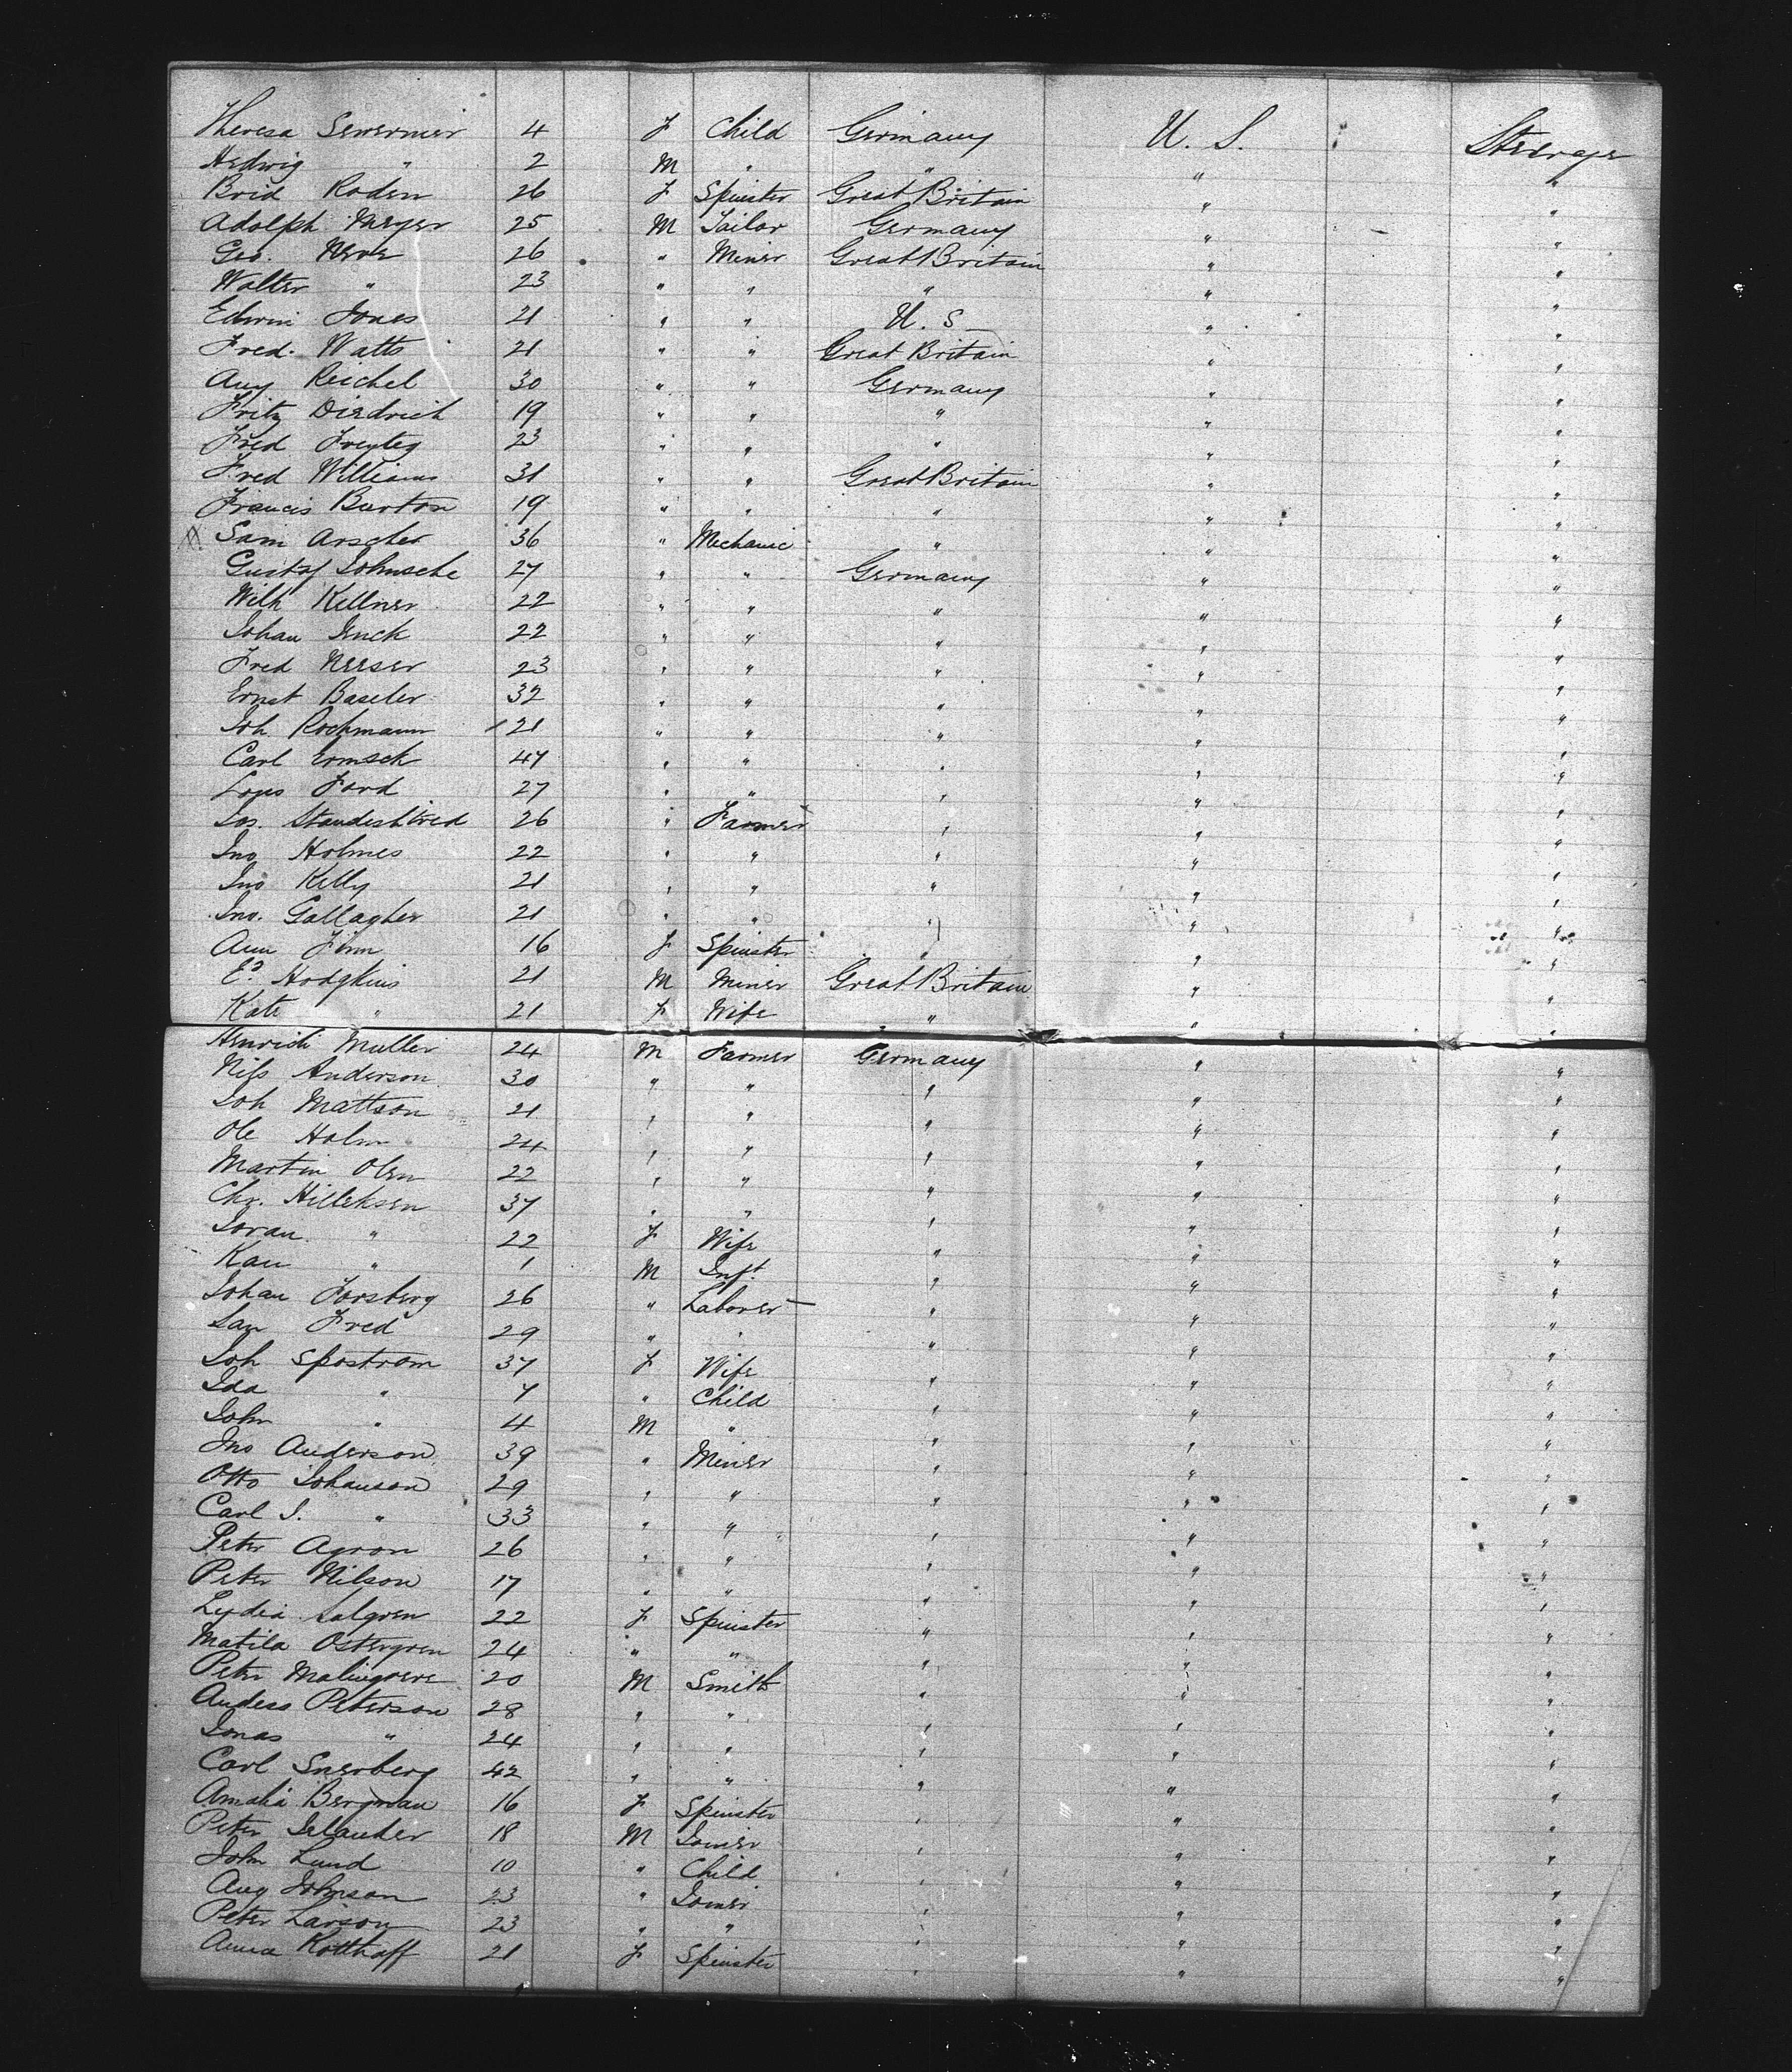 Theresa Sewermier 4 F Child Germany U. S. Steerage
Hedwig " 2 M " " " "
Brid Roden 26 F Spinster Great Britain " "
Adolph Meyer 25 M Tailor Germany " "
Geo. Neve 26 " Miner Great Britain " "
Walter " 23 " " " " "
Edwin Jones 21 " " U. S. " "
Fred. Watts 21 " " Great Britain " "
Aug Reichel 30 " " Germany " "
Fritz Diedrich 19 " " " " "
Fred Freyteg 23 " " " " "
Fred Williams 31 " " Great Britain " "
Francis Burton 19 " " " " "
Sam Arscher 36 " Mechanic " " "
Gustaf Johnsche 27 " " Germany " "
Wilh Killner 22 " " " " "
Johan Jenck 22 " " " " "
Fred Neeser 23 " " " " "
Ernst Baseler 32 " " " " "
Joh Rochmann 21 " " " " "
Carl Ermsch 47 " " " " "
Lous Ford 27 " " " " "
Jos. 26 " Farmer " " "
Jno Holmes 22 " " " " "
Jno Kelly 21 " " " " "
Jno. Gallagher 21 " " " " "
Ann Finn 16 F Spinster " " "
Ed Hodgkins 21 M Miner Great Britain " "
Kate " 21 F Wife " " "
Henrich Muller 24 M Farmer Germany " "
Nils Anderson 30 " " " " "
Joh Mattson 21 " " " " "
Ole Holm 24 " " " " "
Martin Olsen 22 " " " " "
Chr. Hilleksen 37 " " " " "
Joran " 22 F Wife " " "
Kari " 1 M Inft. " " "
Johan Forsberg 26 " Laborer " " "
Jan Fred 29 " " " " "
Joh Spostrom 37 F Wife " " "
Ida " 7 " Child " " "
John " 4 M " " " "
Jno Anderson 39 " Miner " " "
Otto Johanson 29 " " " " "
Carl J. " 33 " " " " "
Peter Agron 26 " " " " "
Peter Nilson 17 " " " " "
Lydia Salgren 22 F Spinster " " "
Matila Ostergren 24 " " " " "
Peter Malingrere 20 M Smith " " "
Anders Peterson 28 " " " " "
Jonas " 24 " " " " "
Carl Snerberg 42 " " " " "
Amalia Bergman 16 F Spinster " " "
Peter Selander 18 M Joiner " " "
John Lund 10 " Child " " "
Aug Johnson 23 " Joiner " " "
Peter Larson 23 " " " " "
Anna Kotthoff 21 F Spinster " " "